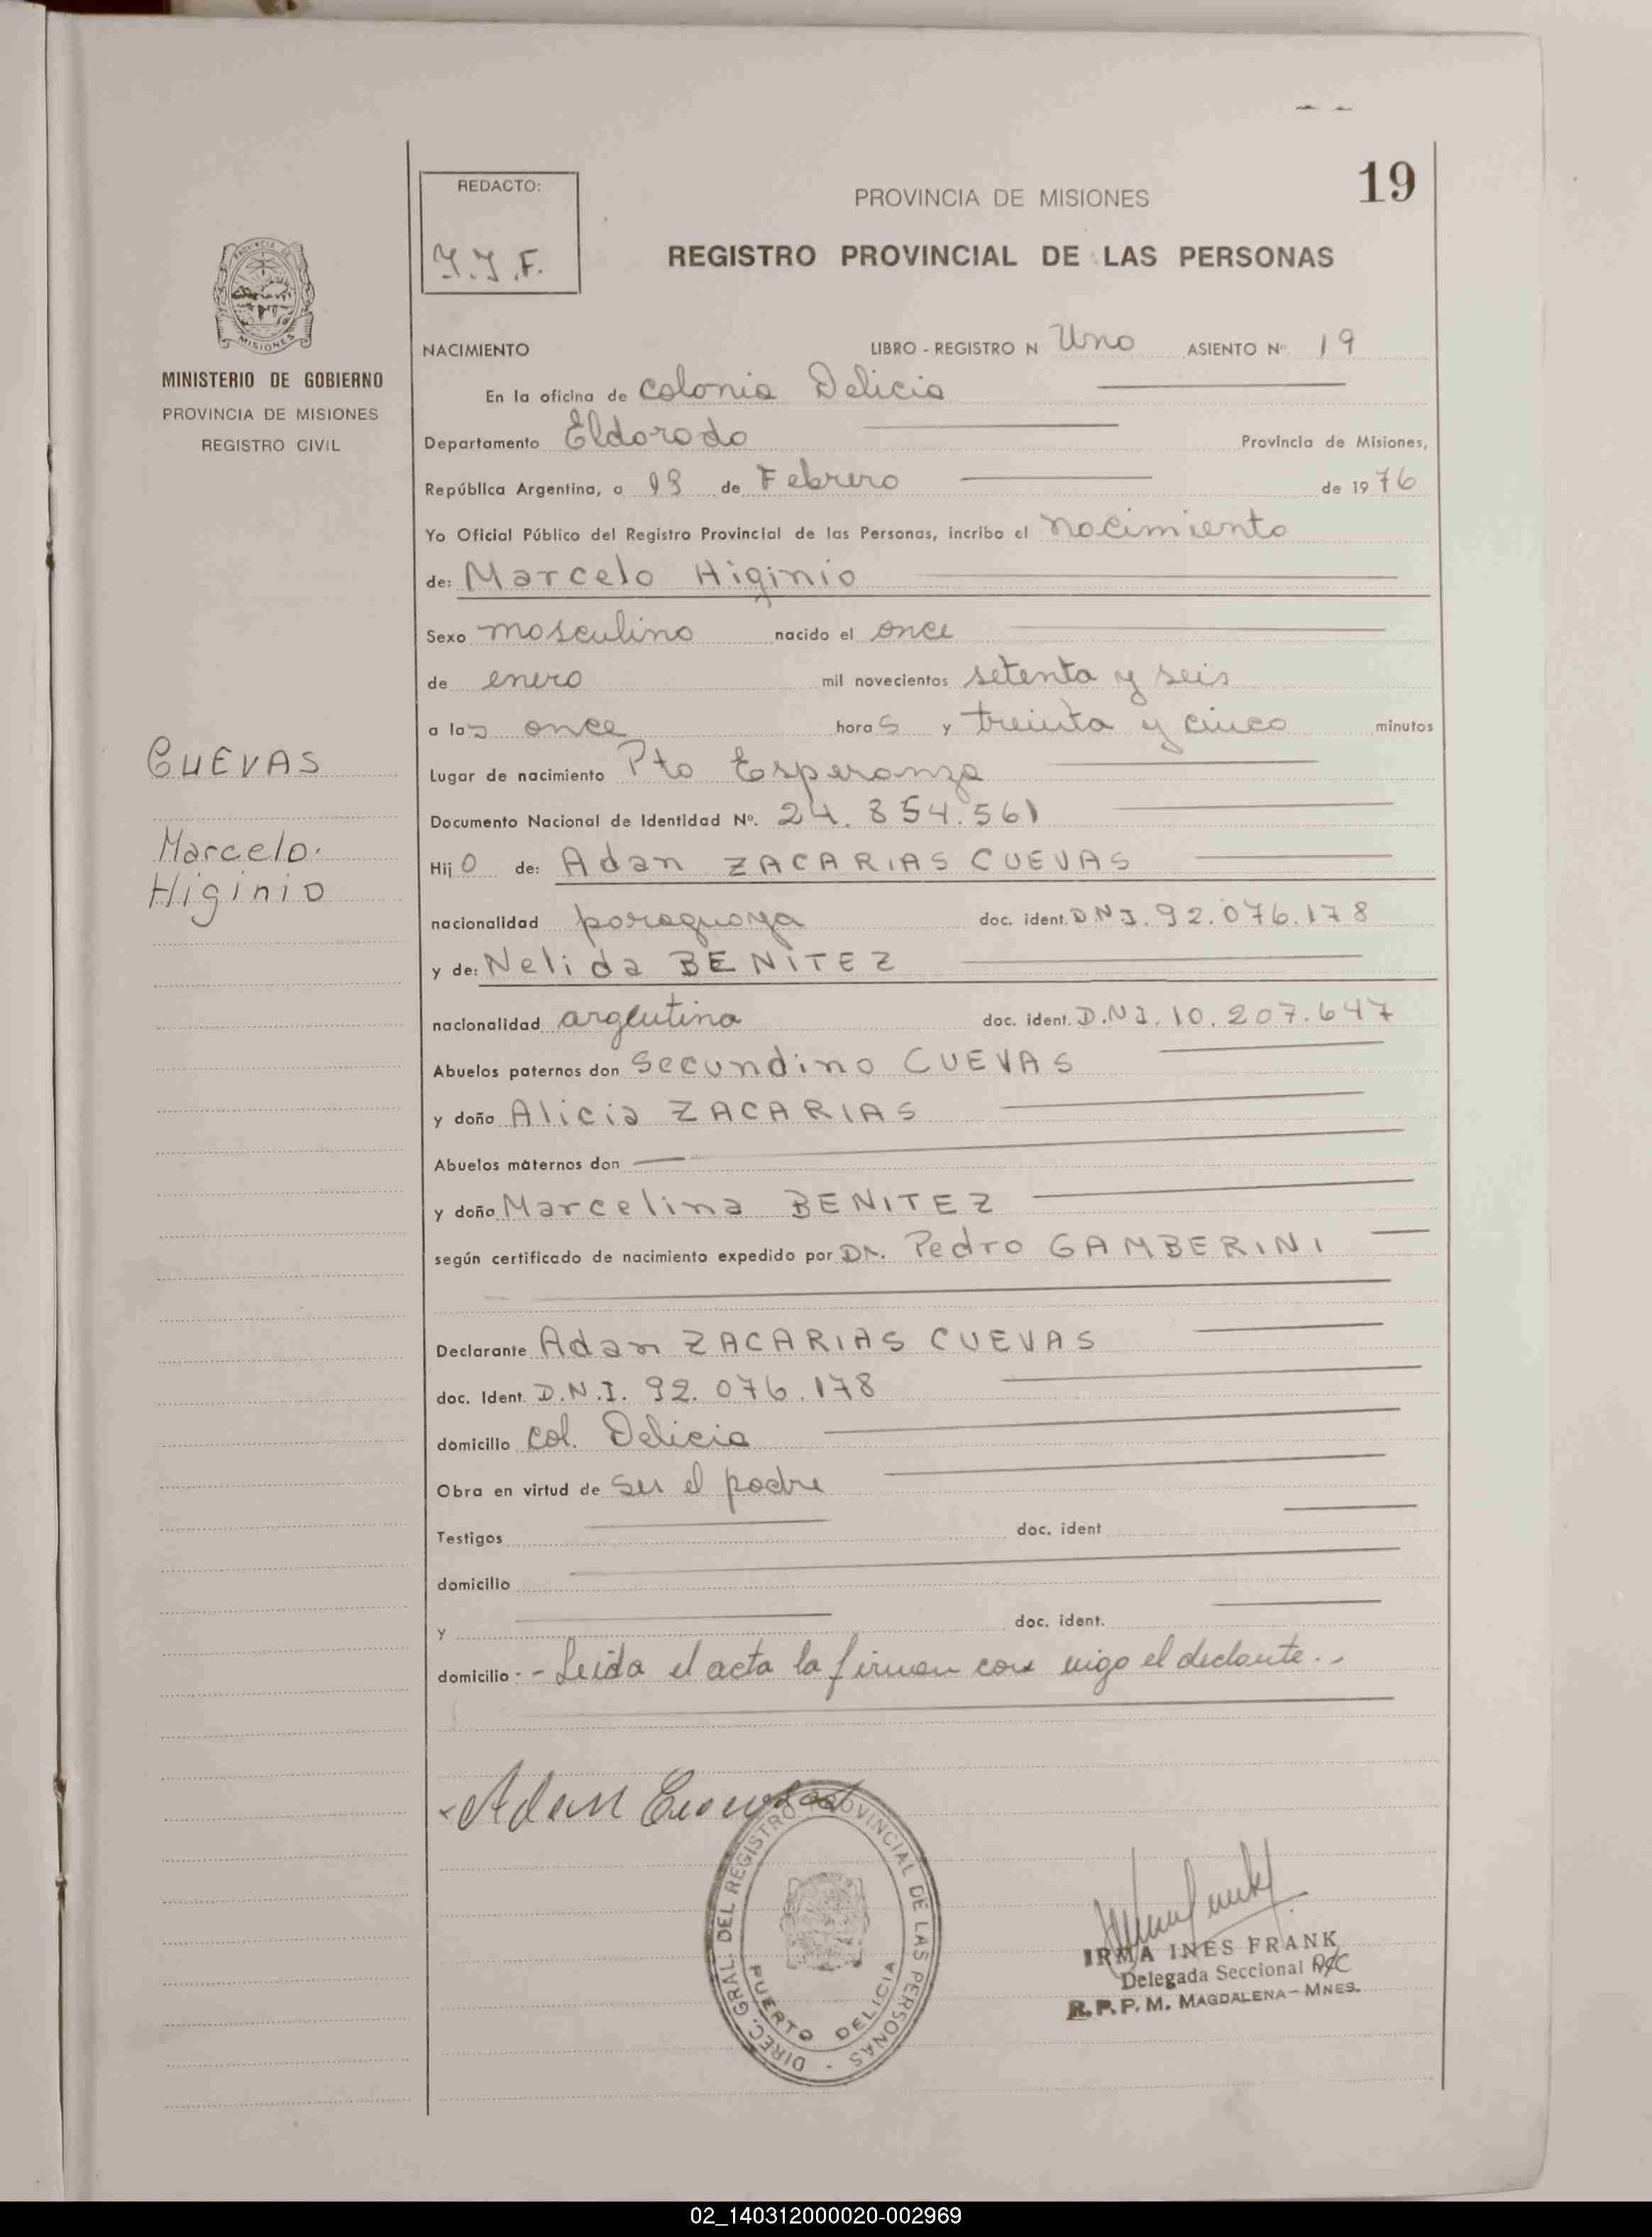 19
REDACTO:
PROVINCIA DE MISIONES
I.I.F.
REGISTRO PROVINCIAL DE LAS PERSONAS
PROVINCIA DE MISIONES
MINISTERIO DE GOBIERNO
PROVINCIA DE MISIONES
REGISTRO CIVIL
NACIMIENTO LIBRO - REGISTRO N Uno ASIENTO Nº 19
En la oficina de Colonia Delicia
Departamento Eldorado Provincia de Misiones,
República Argentina, a de Febrero de 1976
Yo Oficial Público del Registro Provincial de las Personas, incribo el nacimiento
de: Marcelo Higinio
Sexo masculino nacido el once
de enero mil novecientos setenta y seis
a las once horas y treinta y cinco minutos
CUEVAS
Marcelo.
Higinio
Lugar de nacimiento Pto Esperanza
Documento Nacional de Identidad Nº. 24.854.561
Hijo de: Adan ZACARIAS CUEVAS
nacionalidad paraguaya doc. ident. D.N.I. 92.076.178
y de: Nelida BENITEZ
nacionalidad argentina doc. ident. D.N.I. 10.207.647
Abuelos paternos don Secundino CUEVAS
y doña Alicia ZACARIAS
Abuelos maternos don
y doña Marcelina BENITEZ
según certificado de nacimiento expedido por Dr. Pedro GAMBERINI
Declarante Adan ZACARIAS CUEVAS
doc. Ident. D.N.I. 92.076.178
domicilio Col. Delicia
Obra en virtud de ser el padre
Testigos doc. ident
domicilio
y doc. ident.
domicilio :- Leida el acta la firman con migo el declante.-
Adan Cuevas
DIREC. GRAL. DEL REGISTRO PROVINCIAL DE LAS PERSONAS
PUERTO DELICIA
IRMA INES FRANK
Delegada Seccional A/C
R.P.P.M. MAGDALENA - MNES.
02_140312000020-002969